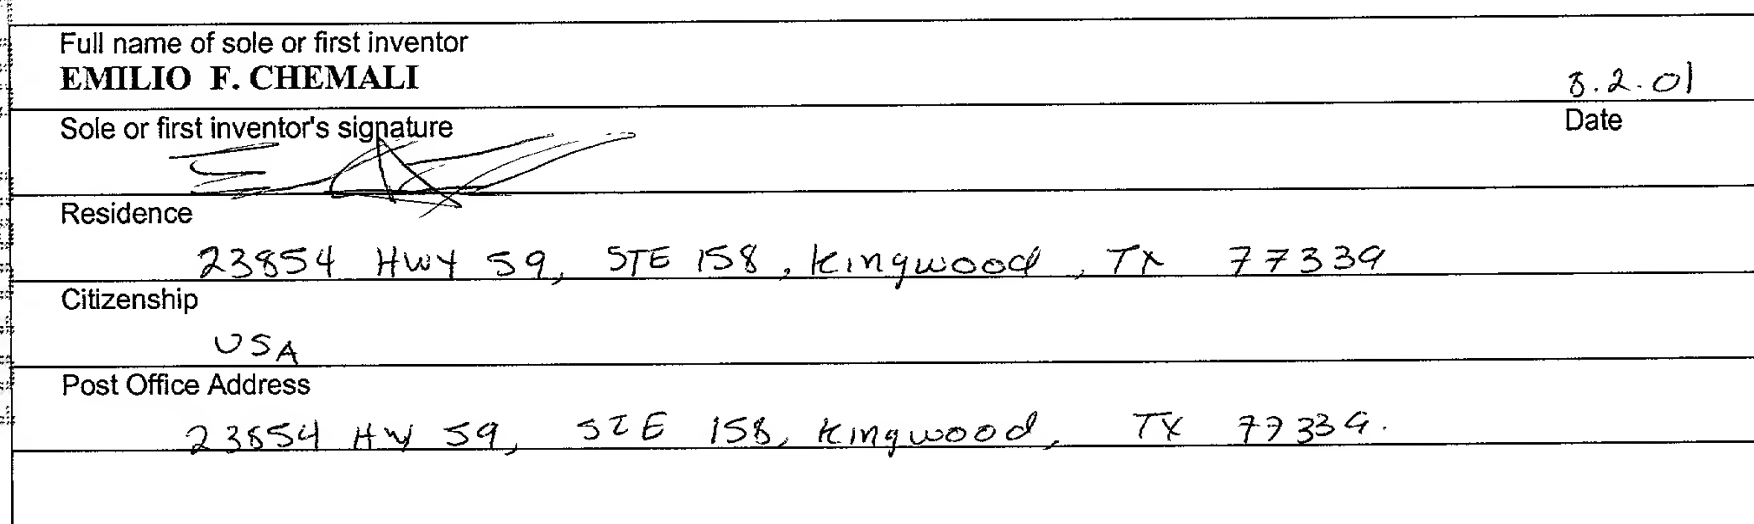 Full name of sole or first inventor
EMILIO F. CHEMALI
8.2.01
Sole or first inventor's signature
Date
Residence
23854 HWY 59, STE 158, Kingwood, TX 77339
Citizenship
USA
Post Office Address
23854 HW 59, STE 158, Kingwood, TX 77339.